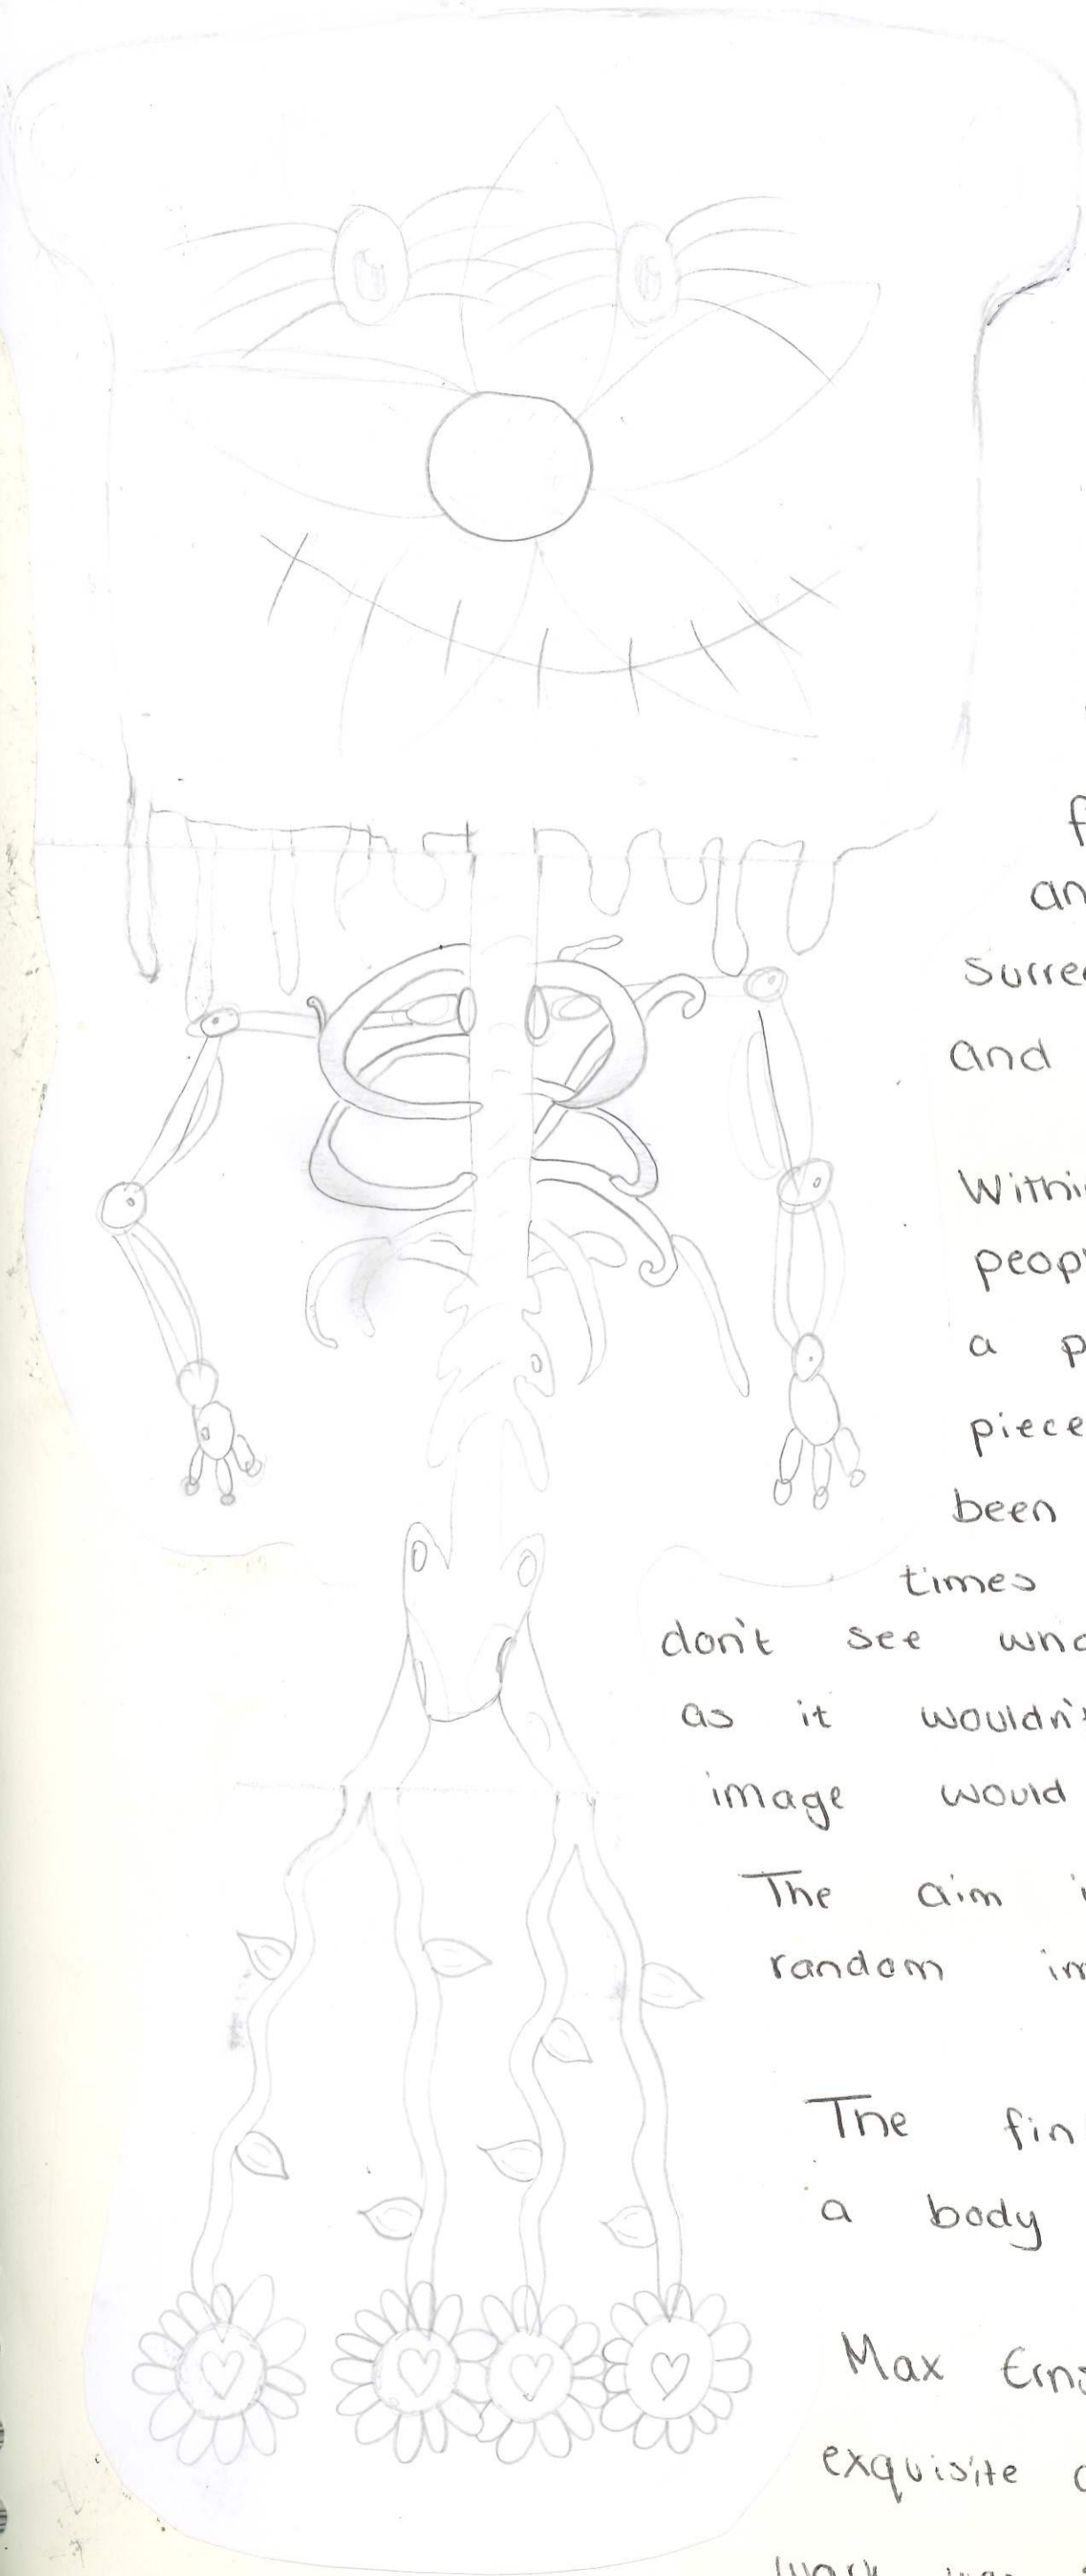 f
an
Surre
and
Withi
peop
a p
piece
been
times
don't see wha
as it wouldn't
image would
The aim i
random im
The fin
a body
Max Erns
exquisite c